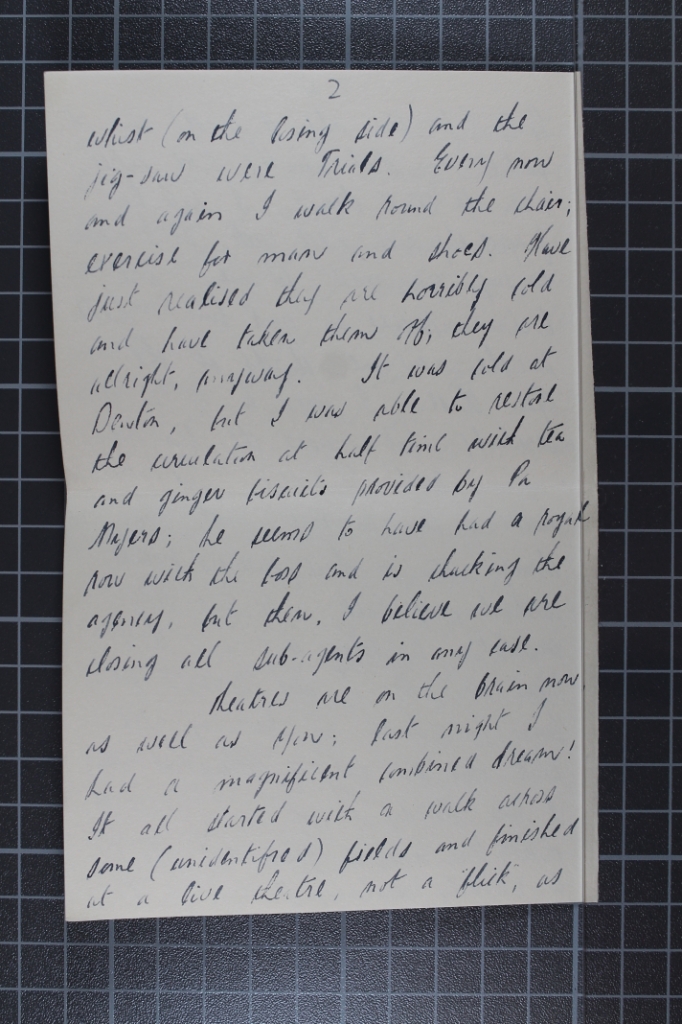 2
whist (on the losing side) and the
jig-saw were Trials. Every now
and again I walk round the chair;
exercise for man and shoes. Have
just realised they are horribly cold
and have taken them off; they are
allright, anyway. It was cold at
Denton, but I was able to restore
the circulation at half time with tea
and ginger biscuits provided by Pa
Myers; he seems to have had a royal
row with the boss and is chucking the
agency, but then, I believe we are
closing all sub-agents in any case.
Theatres are on the brain now
as well as you; last night I
had a magnificent combined dream!
It all started with a walk across
some (unidentified) fields and finished
at a live theatre, not a "flick", as